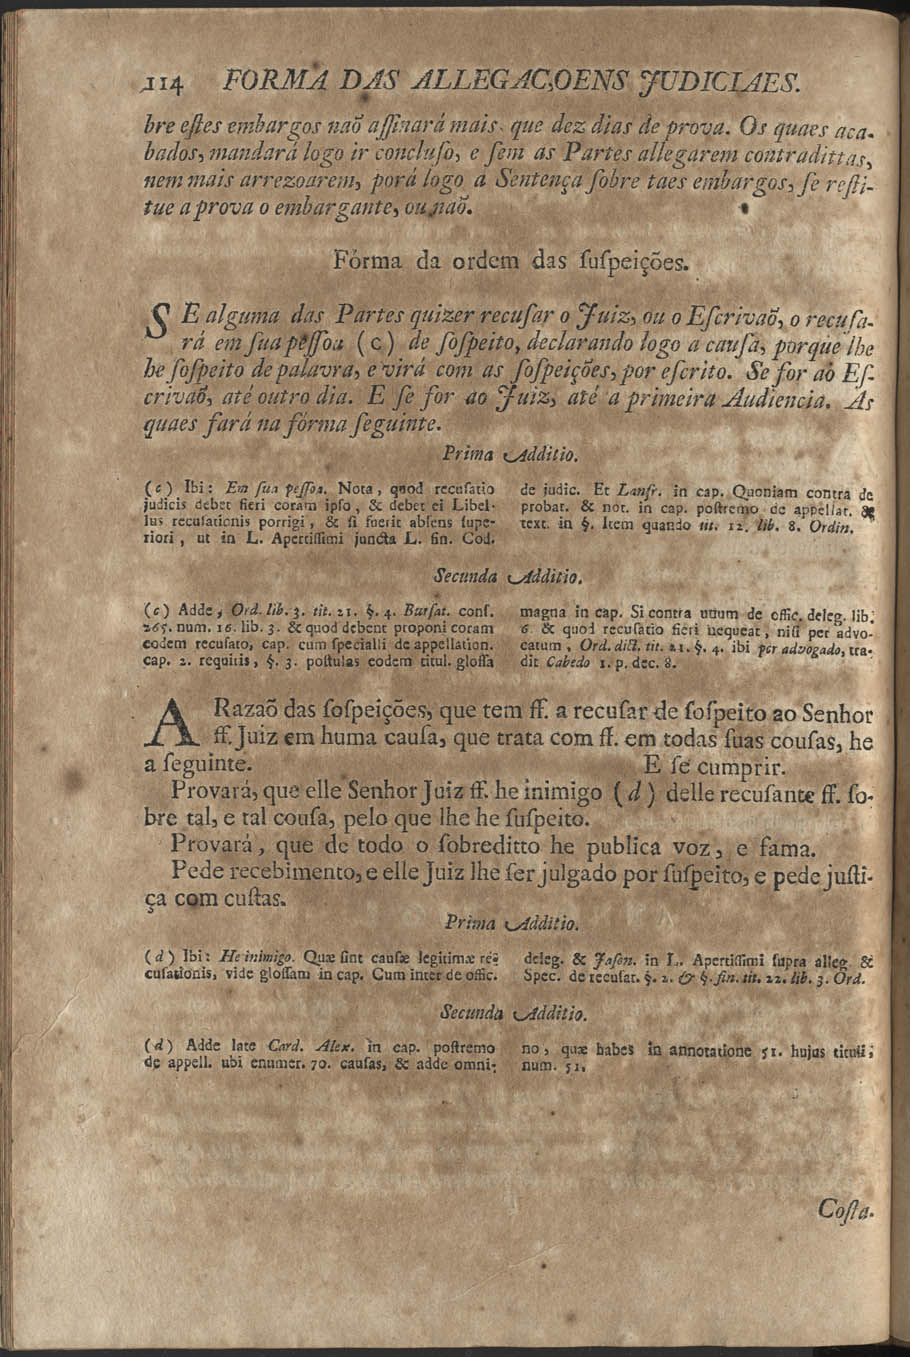 114 FORMA DAS ALLEGAC,OENS JUDICIAES.
bre eſtes embargos naõ aſſinará mais que dez dias de prova. Os quaes aca-
bados, mandará logo ir concluſo, e ſem as Partes allegarem contradittas,
nem mais arrezoarem, porá logo a Sentença ſobre taes embargos, ſe reſti-
tue a prova o embargante, ou naõ.
Fórma da ordem das ſuſpeições.
SE alguma das Partes quizer recuſar o Juiz, ou o Eſcrivaõ, o recuſa-
rá em ſua peſſoa (c) de ſoſpeito, declarando logo a cauſa, porque lhe
he ſoſpeito de palavra, e virá com as ſoſpeições, por eſcrito. Se for ao Eſ-
crivaõ, até outro dia. E ſe for ao Juiz, até a primeira Audiencia. As
quaes fará na fórma ſeguinte.
Prima Additio.
(c) Ibi: Em ſua peſſoa. Nota, quod recuſatio
judicis debet fieri coram ipſo, & debet ei Libel-
lus recuſationis porrigi, & ſi fuerit abſens ſupe-
riori, ut in L. Apertiſſimi juncta L. fin. Cod.
de judic. Et Lanfr. in cap. Quoniam contra de
probat. & not. in cap. poſtremo de appellat. &
text. in §. Item quando tit. 12. lib. 8. Ordin.
Secunda Additio.
(c) Adde, Ord. lib. 3. tit. 21. §. 4. Burſat. conſ.
265. num. 16. lib. 3. & quod debent proponi coram
eodem recuſato, cap. cum ſpecialli de appellation.
cap. 2. requiris, §. 3. poſtulas eodem titul. gloſſa
magna in cap. Si contra unum de offic. deleg. lib.
6. & quod recuſatio fieri nequeat, niſi per advo-
catum, Ord. dict. tit. 21. §. 4. ibi per advogado, tra-
dit Cabedo 1. p. dec. 8.
A Razaõ das ſoſpeições, que tem ff. a recuſar de ſoſpeito ao Senhor
ff. Juiz em huma cauſa, que trata com ff. em todas ſuas couſas, he
a ſeguinte. E ſe cumprir.
Provará, que elle Senhor Juiz ff. he inimigo (d) delle recuſante ff. ſo-
bre tal, e tal couſa, pelo que lhe he ſuſpeito.
Provará, que de todo o ſobreditto he publica voz, e fama.
Pede recebimento, e elle Juiz lhe ſer julgado por ſuſpeito, e pede juſti-
ça com cuſtas.
Prima Additio.
(d) Ibi: He inimigo. Quæ ſint cauſæ legitimæ re-
cuſationis, vide gloſſam in cap. Cum inter de offic.
deleg. & Jaſon. in L. Apertiſſimi ſupra alleg. &
Spec. de recuſat. §. 2. & §. fin. tit. 22. lib. 3. Ord.
Secunda Additio.
(d) Adde late Card. Alex. in cap. poſtremo
de appell. ubi enumer. 70. cauſas, & adde omni-
no, quæ habes in annotatione 51. hujus tituli,
num. 51.
Coſta.